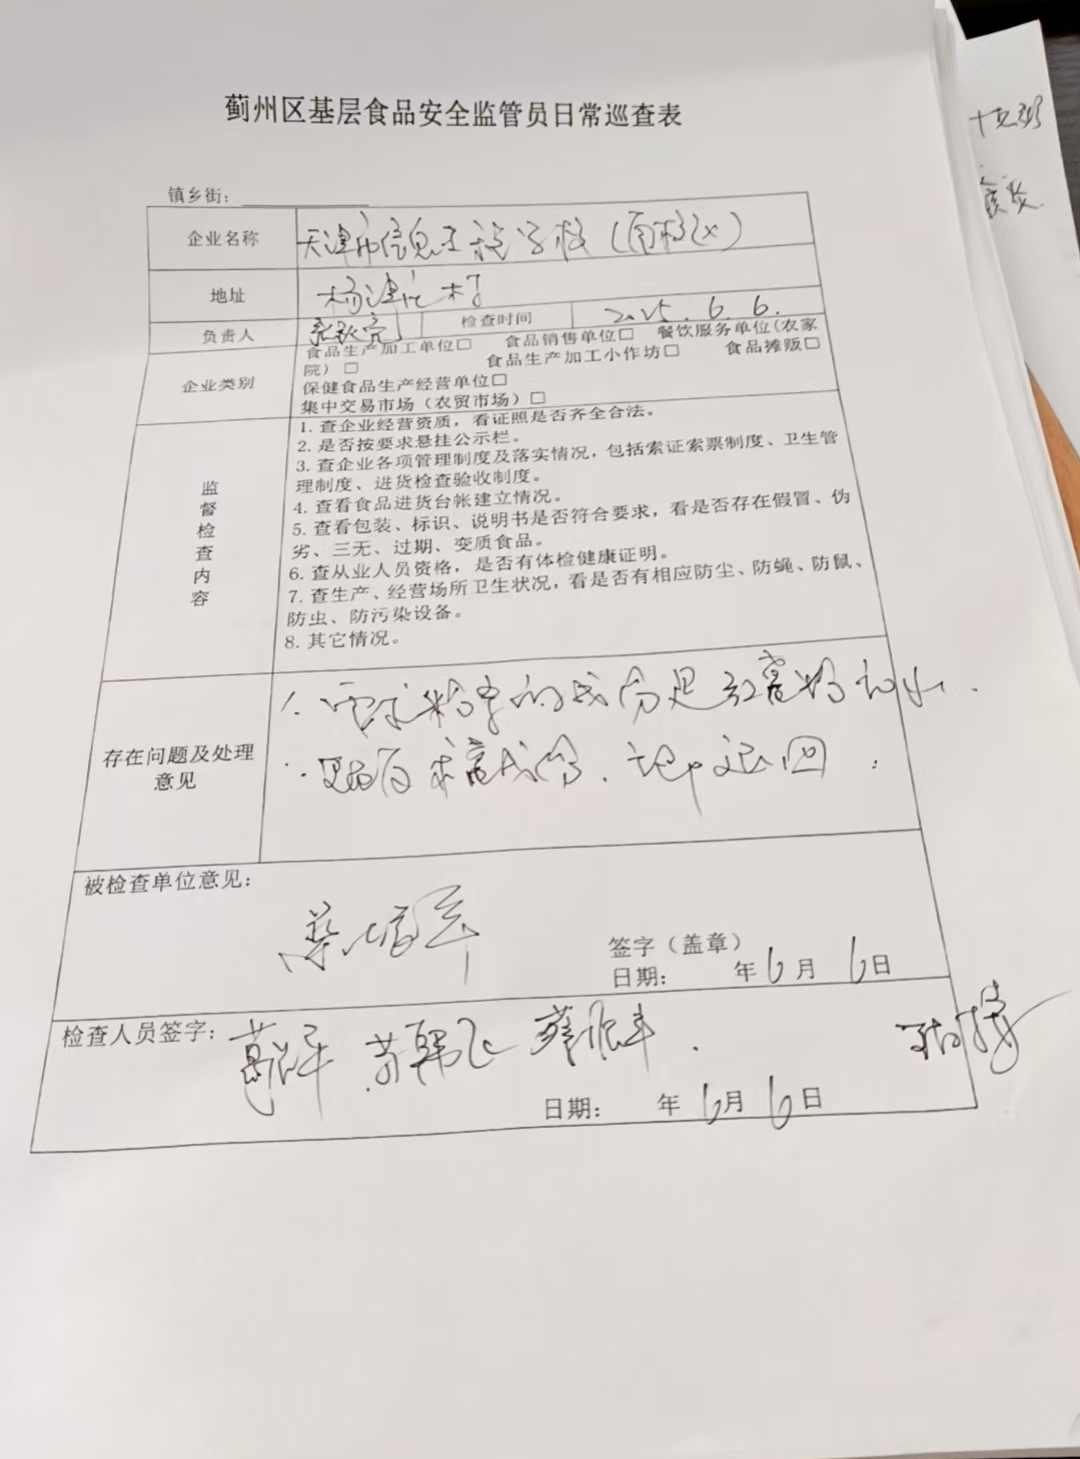 蓟州区基层食品安全监管员日常巡查表
镇乡街：
企业名称 天津市信息工程学校（南校区）
地址 杨津庄村
负责人 检查时间 2025.6.6.
企业类别
食品生产加工单位□ 食品销售单位□ 餐饮服务单位(农家
院）□ 食品生产加工小作坊□ 食品摊贩□
保健食品生产经营单位□
集中交易市场（农贸市场）□
监督检查内容
1. 查企业经营资质，看证照是否齐全合法。
2. 是否按要求悬挂公示栏。
3. 查企业各项管理制度及落实情况，包括索证索票制度、卫生管
理制度、进货检查验收制度。
4. 查看食品进货台帐建立情况。
5. 查看包装、标识、说明书是否符合要求，看是否存在假冒、伪
劣、三无、过期、变质食品。
6. 查从业人员资格，是否有体检健康证明。
7. 查生产、经营场所卫生状况，看是否有相应防尘、防蝇、防鼠、
防虫、防污染设备。
8. 其它情况。
存在问题及处理
意见
的成分是
成分
被检查单位意见：
签字（盖章）
日期： 年6月6日
检查人员签字：
日期： 年6月6日